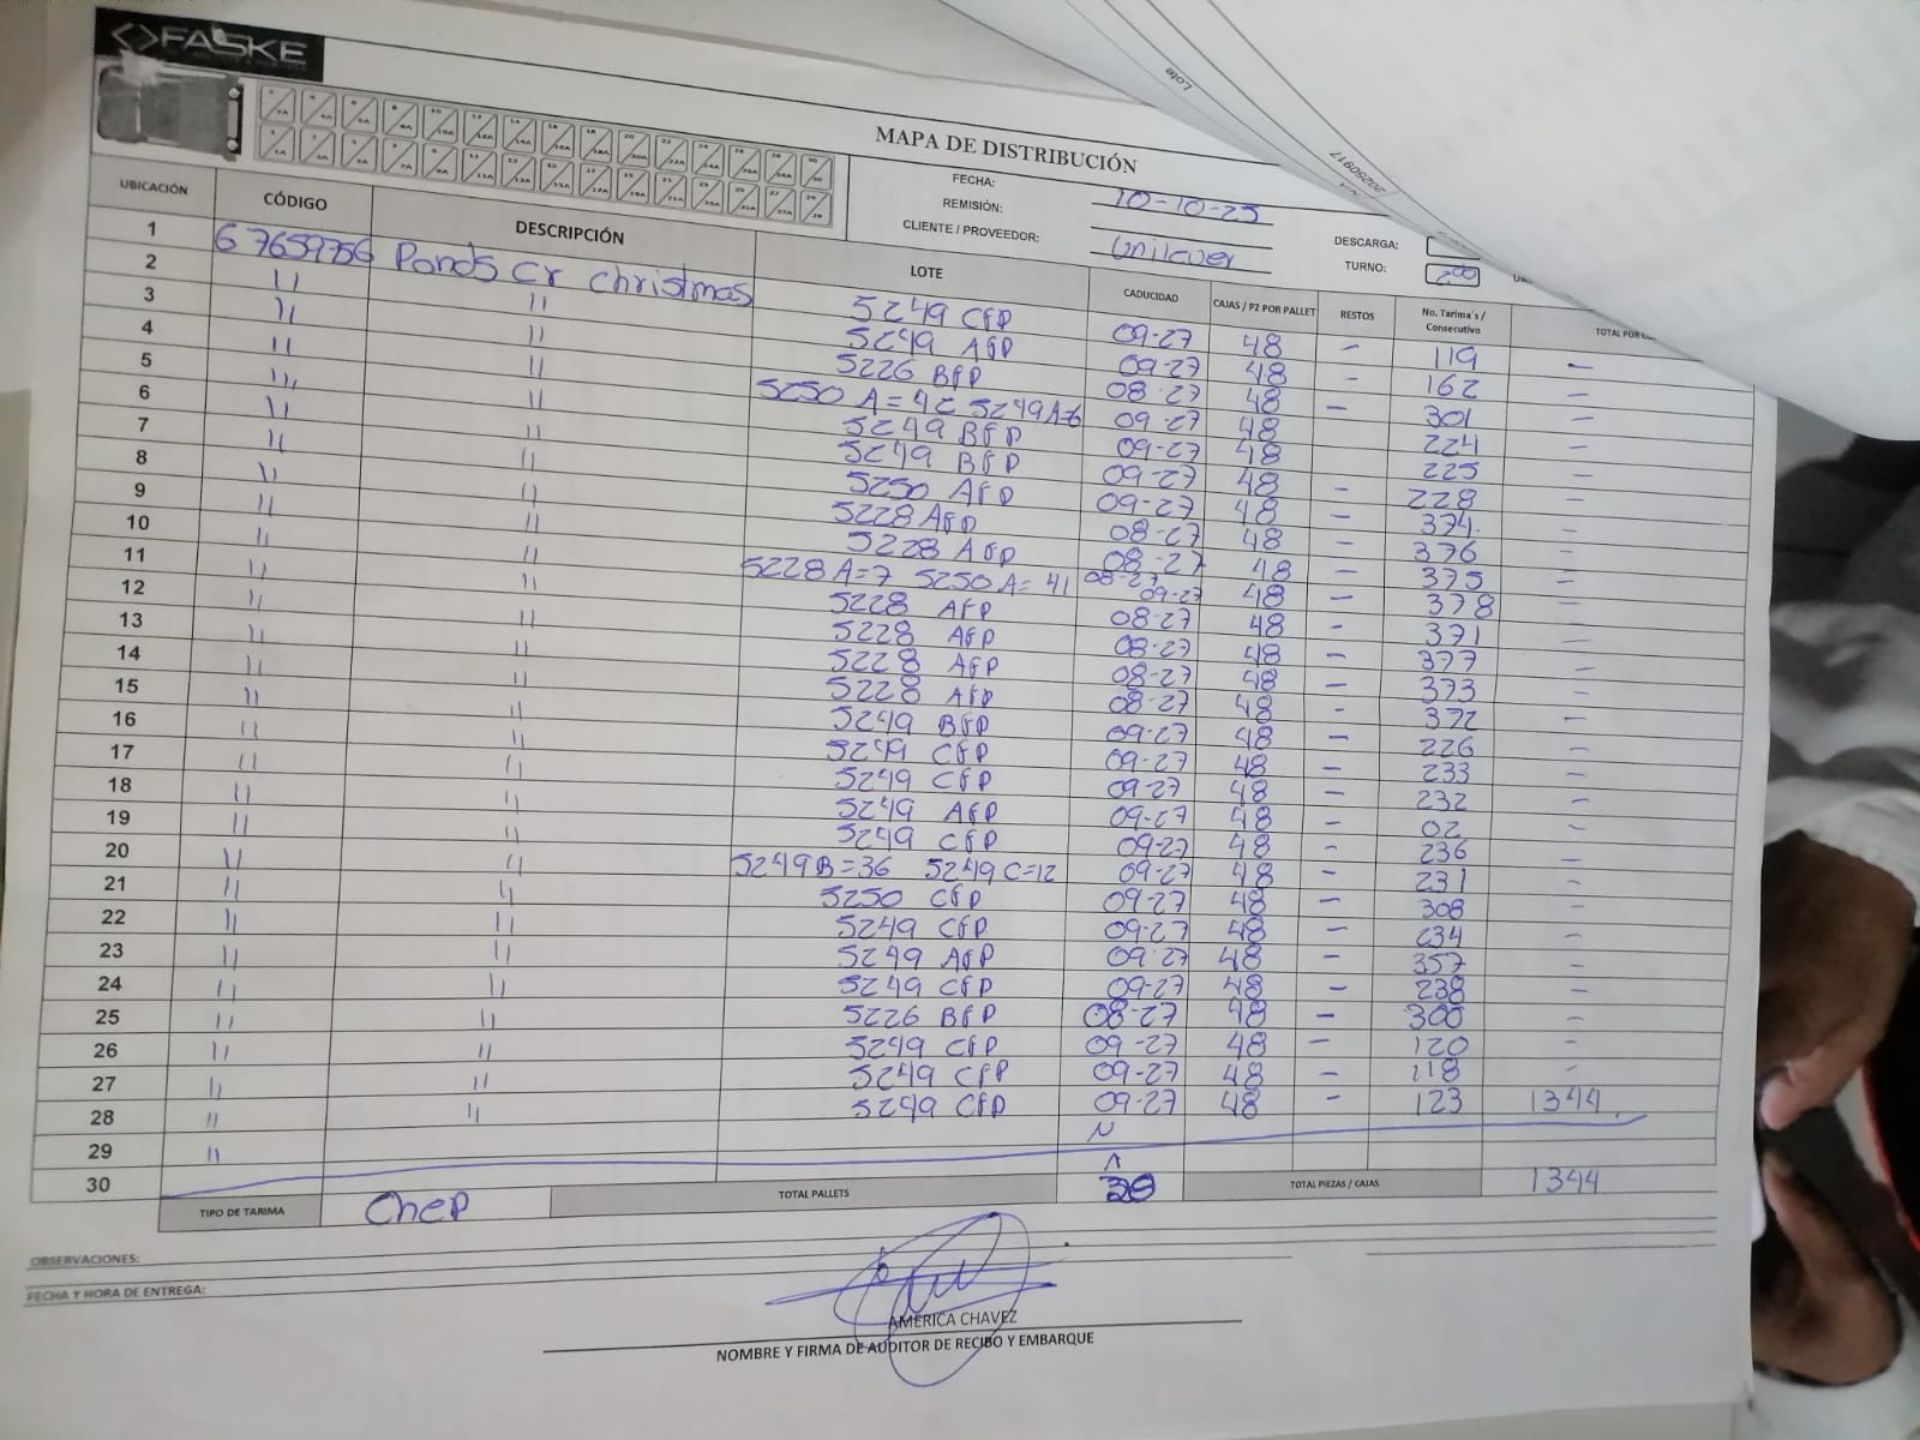 FASKE
MAPA DE DISTRIBUCIÓN
FECHA: 10-10-25
REMISIÓN:
CLIENTE / PROVEEDOR: Unilever
DESCARGA:
TURNO: 2do
Lote
20250917
UBICACIÓN CÓDIGO DESCRIPCIÓN LOTE CADUCIDAD CAJAS / PZ POR PALLET RESTOS No. Tarima's / Consecutivo TOTAL POR
1 67659756 Ponds cr christmas 5249 CfP 09-27 48 - 119 -
2 11 11 5249 AfP 09-27 48 - 162 -
3 11 11 5226 BfP 08-27 48 - 301 -
4 11 11 5250 A=42 5249A=6 09-27 48 224 -
5 11 11 5249 BfP 09-27 48 225 -
6 11 11 5249 BfP 09-27 48 - 228 -
7 11 11 5250 AfP 09-27 48 - 374. -
8 11 11 5228 AfP 08-27 48 - 376 -
9 11 11 5228 AfP 08-27 48 - 375 -
10 11 11 5228 A=7 5250 A=41 08-27 09-27 48 - 378 -
11 11 11 5228 AfP 08-27 48 - 371 -
12 11 11 5228 AfP 08-27 48 - 377 -
13 11 11 5228 AfP 08-27 48 - 373 -
14 11 11 5228 AfP 08-27 48 - 372 -
15 11 11 5249 BfP 09-27 48 - 226 -
16 11 11 5249 CfP 09-27 48 - 233 -
17 11 11 5249 CfP 09-27 48 - 232 -
18 11 11 5249 AfP 09-27 48 - 02 -
19 11 11 5249 CfP 09-27 48 - 236 -
20 11 11 5249B=36 5249C=12 09-27 48 - 231 -
21 11 11 5250 CfP 09-27 48 - 308 -
22 11 11 5249 CfP 09-27 48 - 234 -
23 11 11 5249 AfP 09-27 48 - 357 -
24 11 11 5249 CfP 09-27 48 - 238 -
25 11 11 5226 BfP 08-27 48 - 300 -
26 11 11 5249 CfP 09-27 48 - 120 -
27 11 11 5249 CfP 09-27 48 - 118 -
28 11 11 5249 CfP 09-27 48 - 123 1344
29 11
30
TIPO DE TARIMA Chep TOTAL PALLETS 28 TOTAL PIEZAS / CAJAS 1344
OBSERVACIONES:
FECHA Y HORA DE ENTREGA:
AMERICA CHAVEZ
NOMBRE Y FIRMA DE AUDITOR DE RECIBO Y EMBARQUE